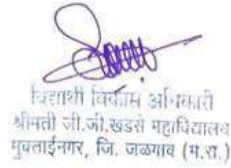 विद्यार्थी विकास अधिकारी
श्रीमती जी.जी.खडसे महाविद्यालय
मुक्ताईनगर, जि. जळगाव (म.रा.)